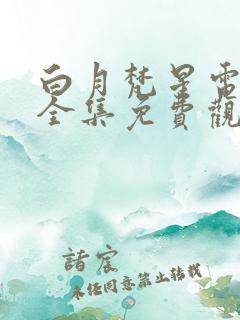 白月梵星電
全集免費觀
諸宸
未经同意禁止转载